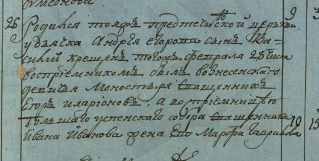 Симеонова
26 Родился тояже предтеченской церкви 9 3
у дьячка Андрея Егорова сынъ Ва-
силий крещенъ тогожъ февраля 28 дня
Воспріемникомъ былъ вознесенского
девичья Монастыря священникъ
Егоръ иларіоновъ, а воспріемницею
успенского собора священника 19 13
Ивана Иванова жена Его Марфа Гаврилова